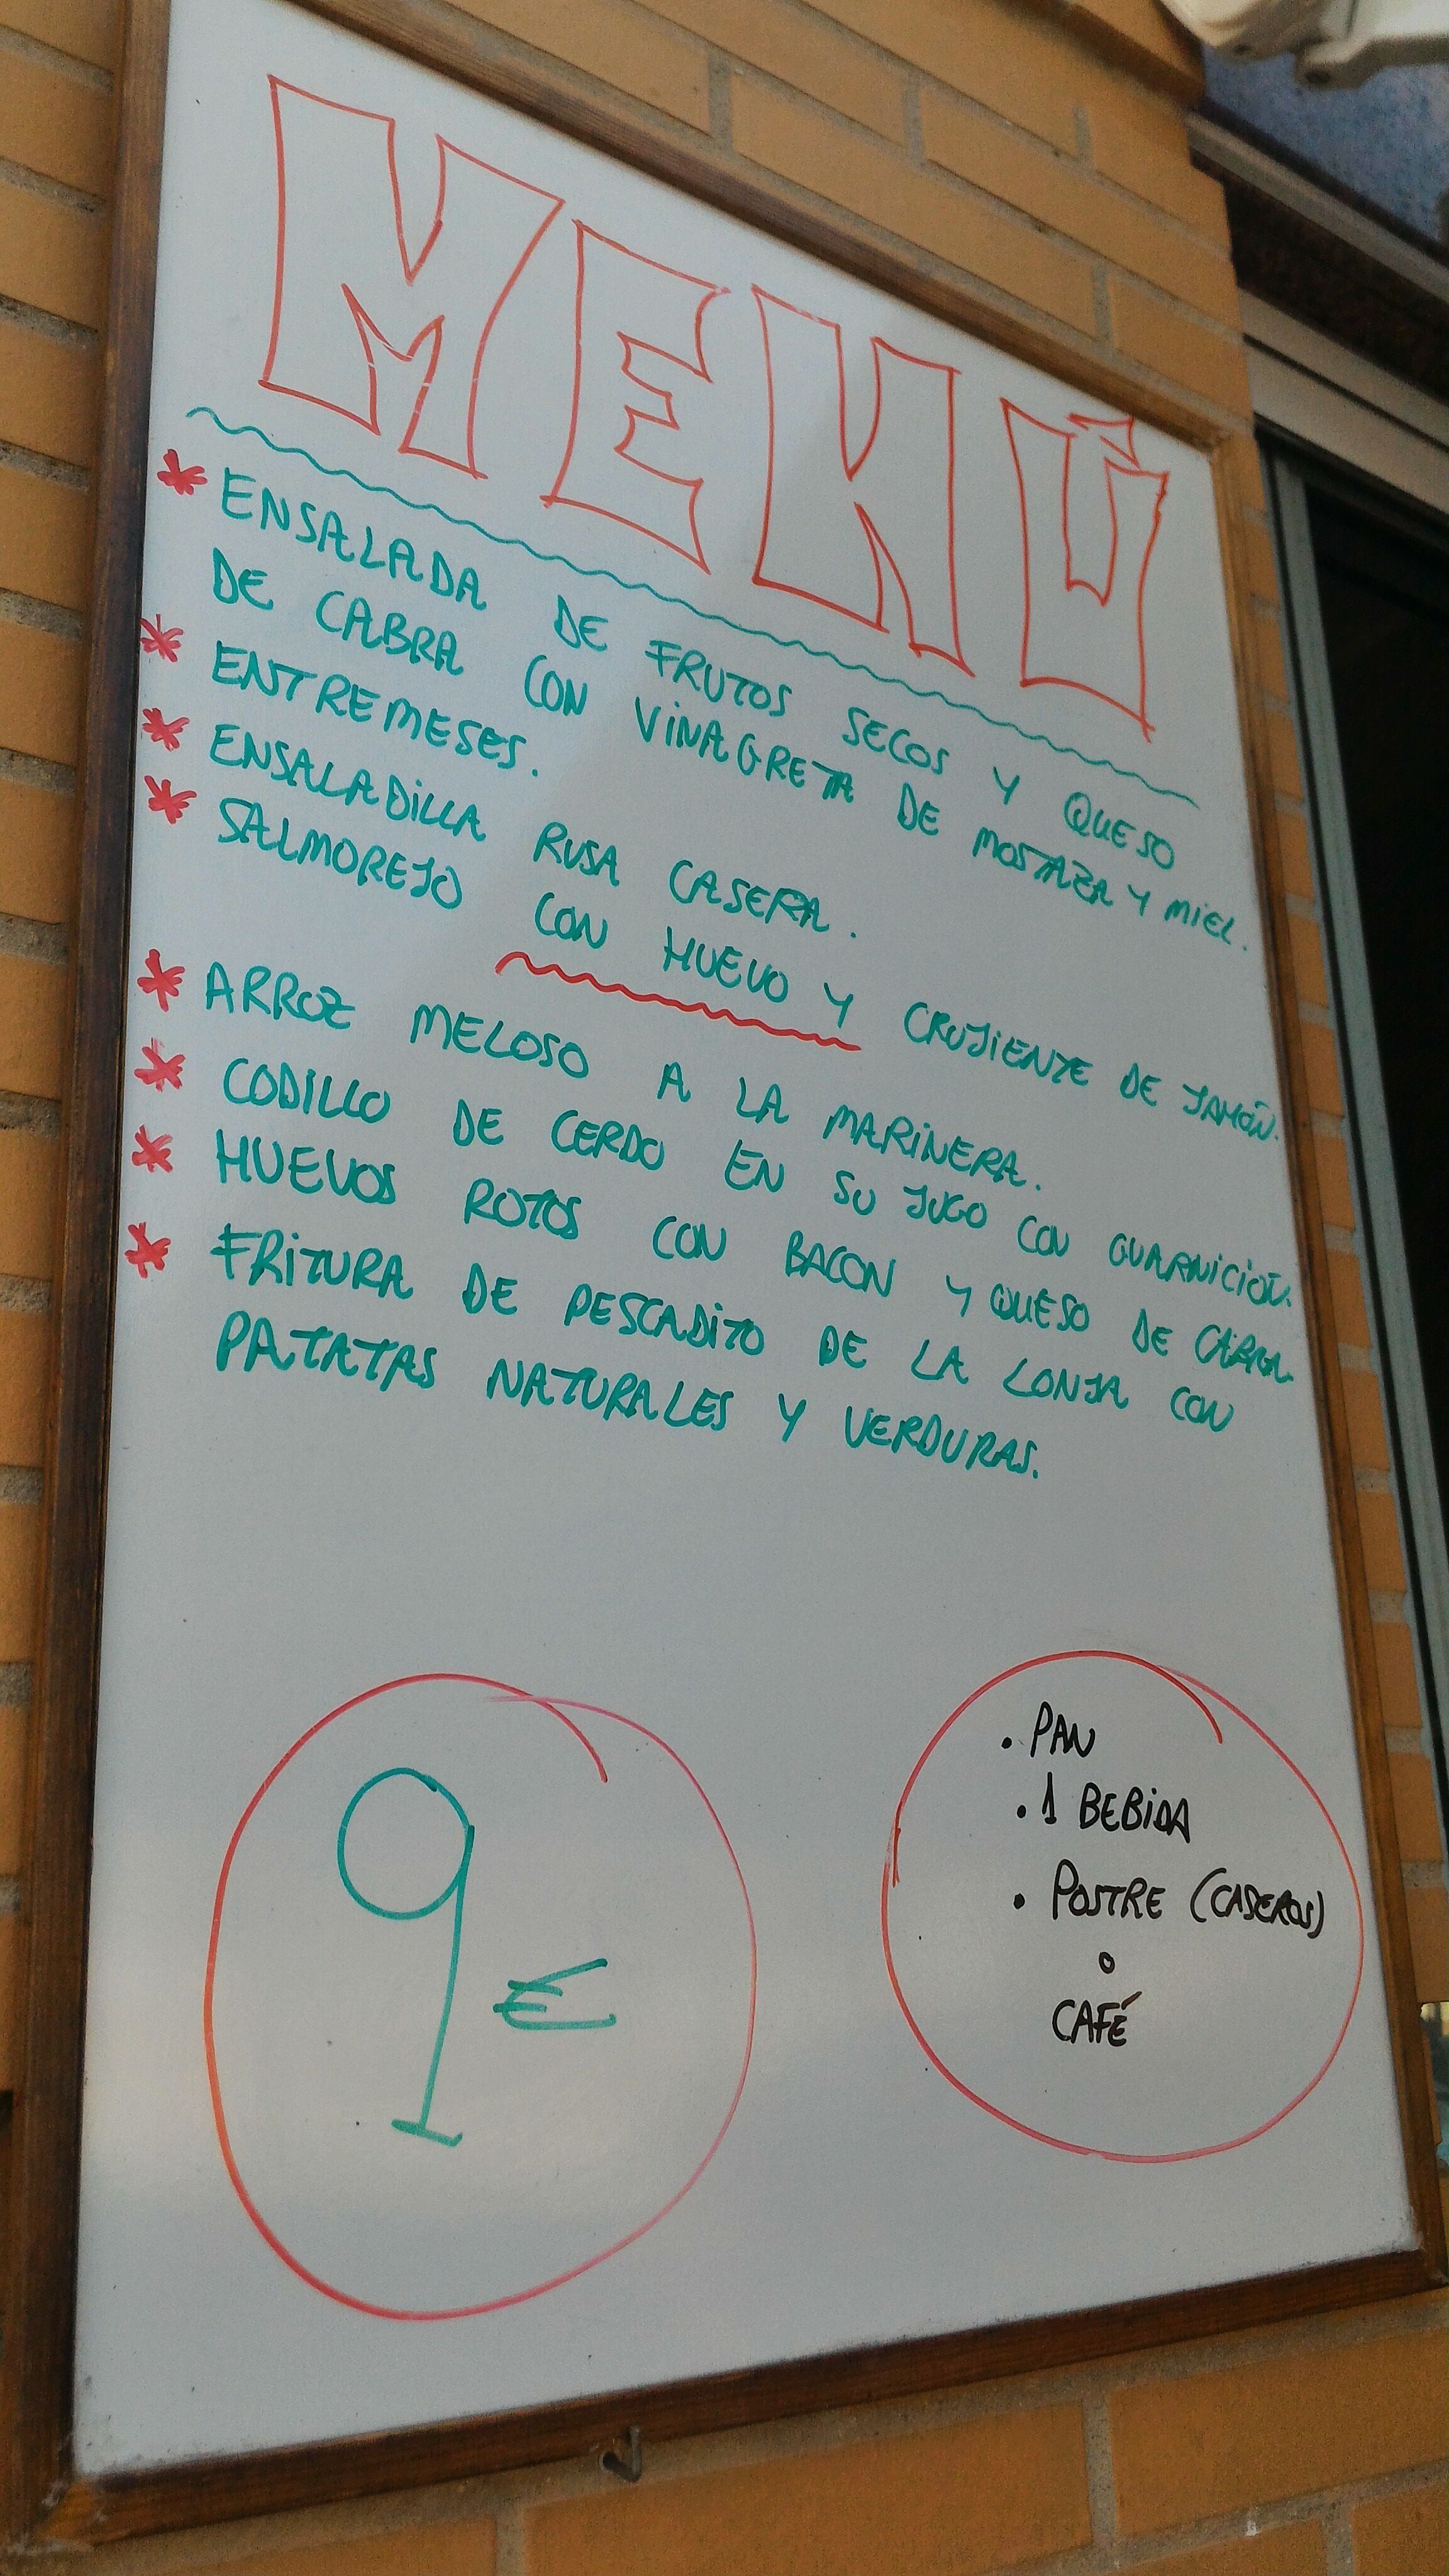 MENÚ
* ENSALADA DE FRUTOS SECOS Y QUESO
DE CABRA CON VINAGRETA DE MOSTAZA Y MIEL.
* ENTREMESES.
* ENSALADILLA RUSA CASERA.
* SALMOREJO CON HUEVO Y CRUJIENTE DE JAMÓN.
* ARROZ MELOSO A LA MARINERA.
* CODILLO DE CERDO EN SU JUGO CON GUARNICIÓN.
* HUEVOS ROTOS CON BACON Y QUESO DE CABRA.
* FRITURA DE PESCADITO DE LA LONJA CON
PATATAS NATURALES Y VERDURAS.
9 €
. PAN
. 1 BEBIDA
. POSTRE (CASEROS)
o
CAFÉ